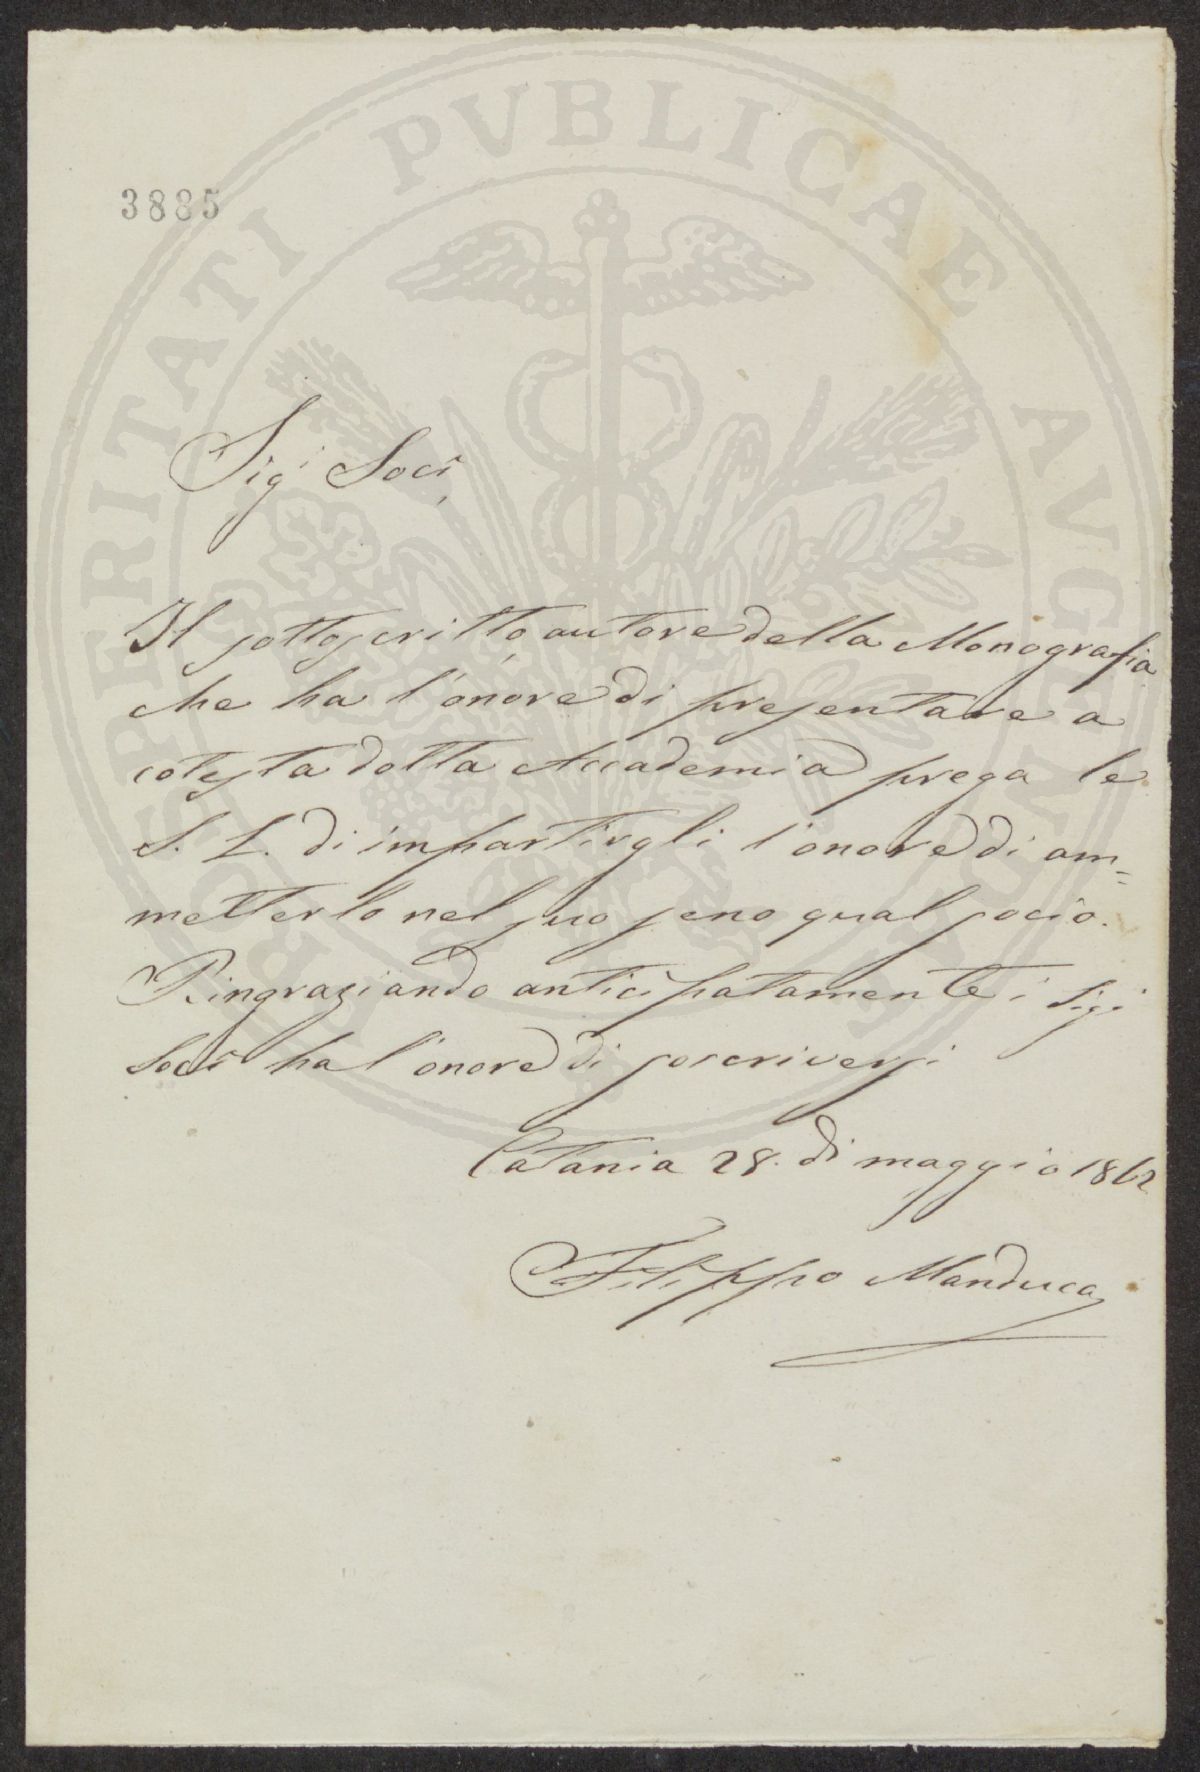 PROSPERITATI PVBLICAE AVGENDAE
3885
Sigi Socî,
Il sottoscritto, autore della Monografia
che ha l'onore di presentare a
cotesta dotta Accademia prega le
S. L. di impartirgli l'onore di am=
metterlo nel suo seno qual socio.
Ringraziando anticipatamente i Sigi
Socî ha l'onore di soscriversi
Catania 28. di maggio 1862
Filippo Manduca